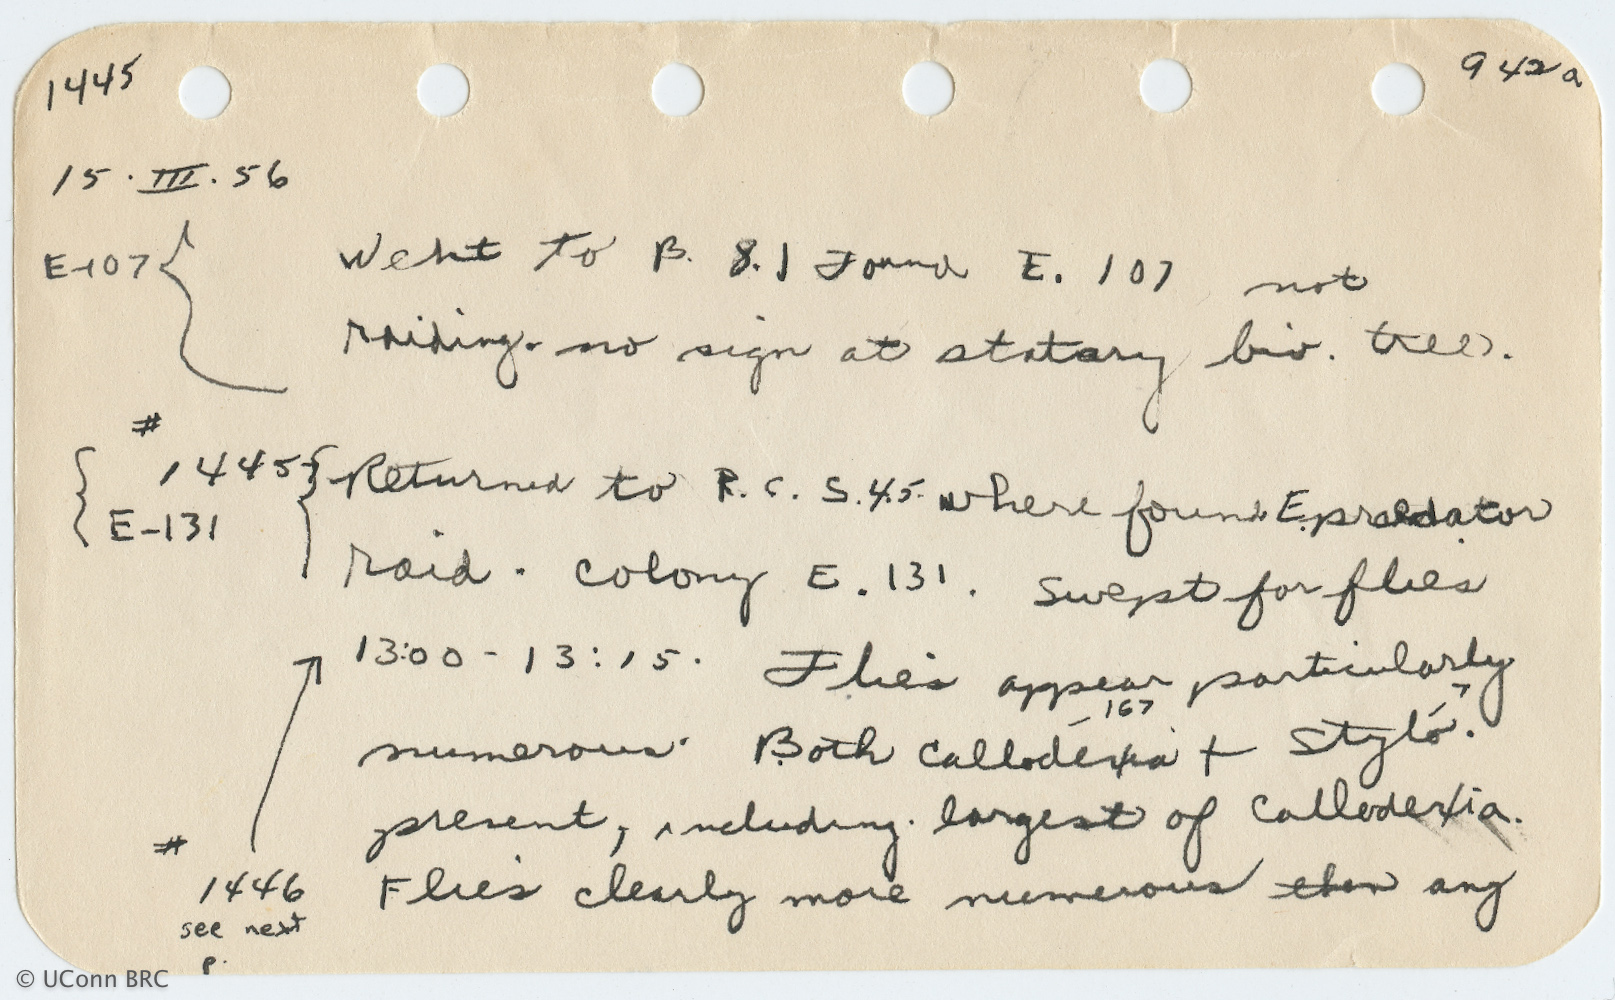 1445
942a
15.III.56
E-107 { Went to B. 8.1 Found E. 107 not
raiding. no sign at statary biv. tree.
#
{ 1445 } Returned to R.C.S.45. where found E. praedator
E-131 raid. colony E.131. Swept for flies
13:00-13:15. Flies appear particularly
numerous. Both Callodexia - 167 + Stylo - 7.
present, including largest of Callodexia.
#
1446 Flies clearly more numerous than any
see next
p.
© UConn BRC